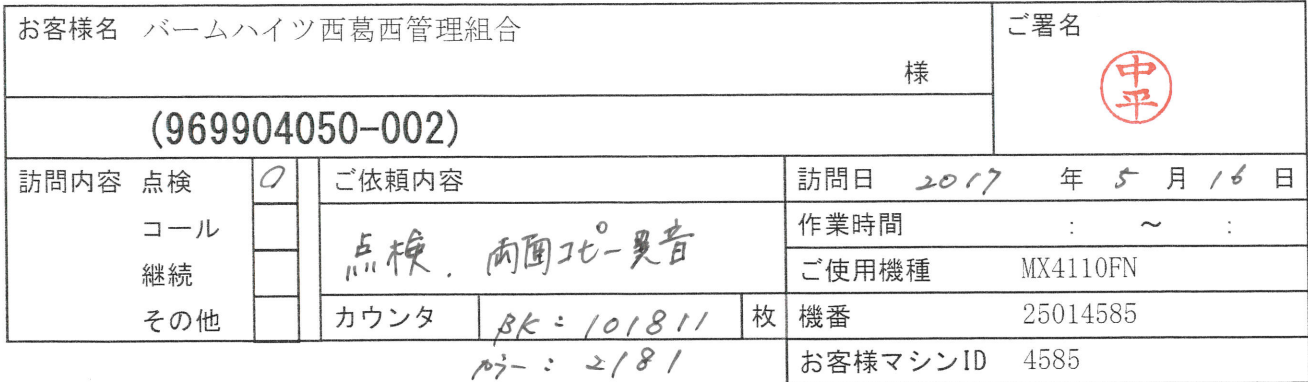 お客様名 バームハイツ西葛西管理組合
様
ご署名
中平
(969904050-002)
訪問内容 点検 〇
コール
継続
その他
ご依頼内容
点検、両面コピー異音
カウンタ BK:101811 枚
カラー:2181
訪問日 2017 年 5 月 16 日
作業時間 : ~ :
ご使用機種 MX4110FN
機番 25014585
お客様マシンID 4585